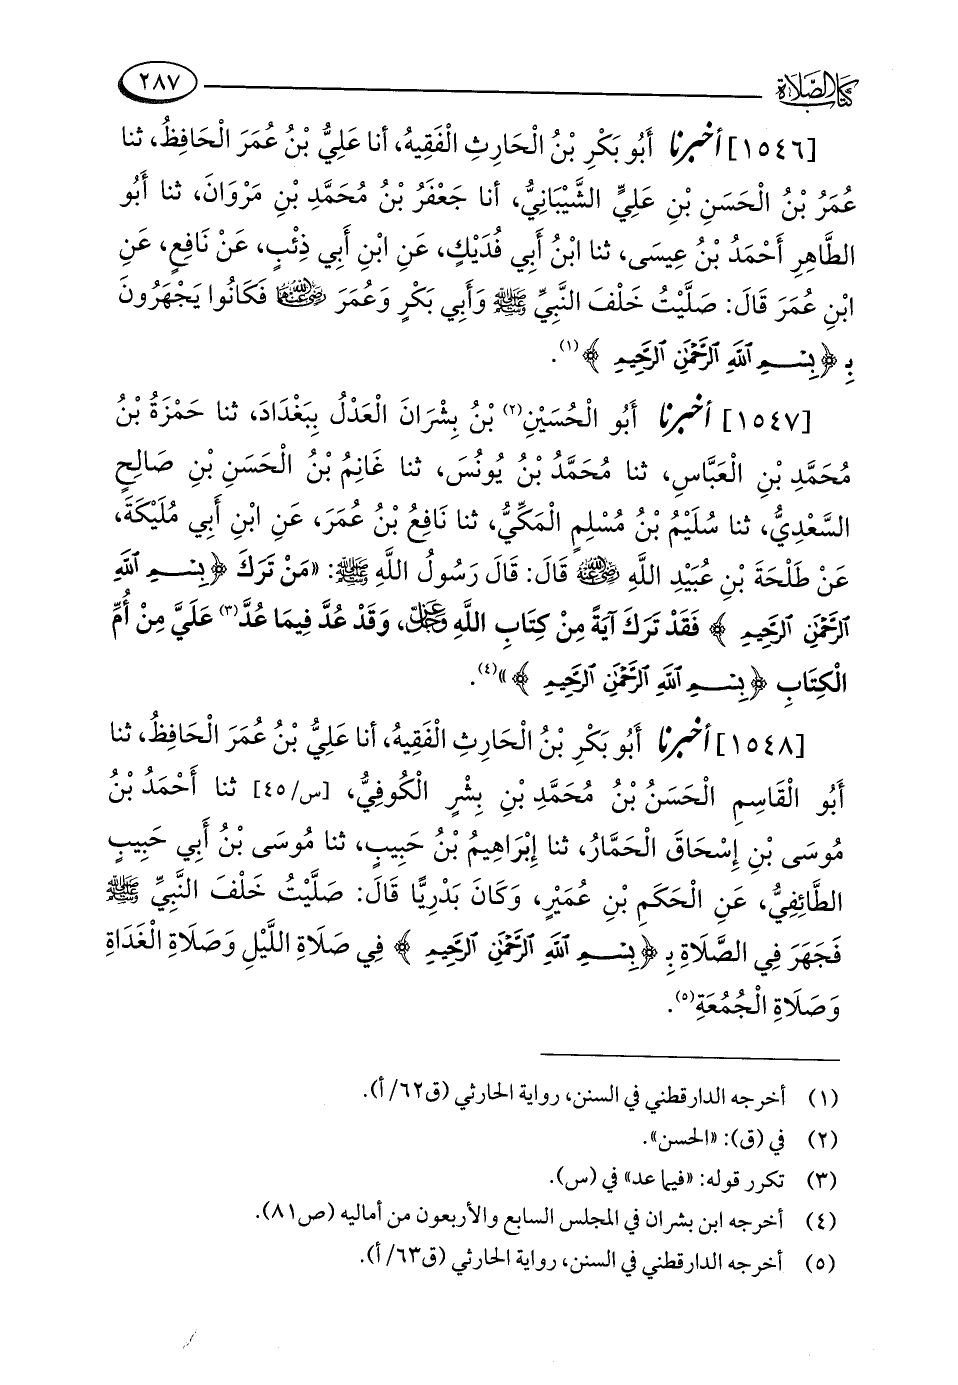 كتاب الصلاة ٢٨٧
[١٥٤٦] أخبرنا أَبُو بَكْرِ بْنُ الْحَارِثِ الْفَقِيهُ، أنا عَلِيُّ بْنُ عُمَرَ الْحَافِظُ، ثنا
عُمَرُ بْنُ الْحَسَنِ بْنِ عَلِيٍّ الشَّيْبَانِيُّ، أنا جَعْفَرُ بْنُ مُحَمَّدِ بْنِ مَرْوَانَ، ثنا أَبُو
الطَّاهِرِ أَحْمَدُ بْنُ عِيسَى، ثنا ابْنُ أَبِي فُدَيْكٍ، عَنِ ابْنِ أَبِي ذِئْبٍ، عَنْ نَافِعٍ، عَنِ
ابْنِ عُمَرَ قَالَ: صَلَّيْتُ خَلْفَ النَّبِيِّ ﷺ وَأَبِي بَكْرٍ وَعُمَرَ رضي الله عنهما فَكَانُوا يَجْهَرُونَ
بِـ ﴿بِسْمِ ٱللَّهِ ٱلرَّحْمَٰنِ ٱلرَّحِيمِ﴾(١).
[١٥٤٧] أخبرنا أَبُو الْحُسَيْنِ(٢) بْنُ بِشْرَانَ الْعَدْلُ بِبَغْدَادَ، ثنا حَمْزَةُ بْنُ
مُحَمَّدِ بْنِ الْعَبَّاسِ، ثنا مُحَمَّدُ بْنُ يُونُسَ، ثنا غَانِمُ بْنُ الْحَسَنِ بْنِ صَالِحٍ
السَّعْدِيُّ، ثنا سُلَيْمُ بْنُ مُسْلِمٍ الْمَكِّيُّ، ثنا نَافِعُ بْنُ عُمَرَ، عَنِ ابْنِ أَبِي مُلَيْكَةَ،
عَنْ طَلْحَةَ بْنِ عُبَيْدِ اللَّهِ رضي الله عنه قَالَ: قَالَ رَسُولُ اللَّهِ ﷺ: «مَنْ تَرَكَ ﴿بِسْمِ ٱللَّهِ
ٱلرَّحْمَٰنِ ٱلرَّحِيمِ﴾ فَقَدْ تَرَكَ آيَةً مِنْ كِتَابِ اللَّهِ عز وجل، وَقَدْ عُدَّ فِيمَا عُدَّ(٣) عَلَيَّ مِنْ أُمِّ
الْكِتَابِ ﴿بِسْمِ ٱللَّهِ ٱلرَّحْمَٰنِ ٱلرَّحِيمِ﴾»(٤).
[١٥٤٨] أخبرنا أَبُو بَكْرِ بْنُ الْحَارِثِ الْفَقِيهُ، أنا عَلِيُّ بْنُ عُمَرَ الْحَافِظُ، ثنا
أَبُو الْقَاسِمِ الْحَسَنُ بْنُ مُحَمَّدِ بْنِ بِشْرٍ الْكُوفِيُّ، [س/٤٥] ثنا أَحْمَدُ بْنُ
مُوسَى بْنِ إِسْحَاقَ الْحَمَّارُ، ثنا إِبْرَاهِيمُ بْنُ حَبِيبٍ، ثنا مُوسَى بْنُ أَبِي حَبِيبٍ
الطَّائِفِيُّ، عَنِ الْحَكَمِ بْنِ عُمَيْرٍ، وَكَانَ بَدْرِيًّا قَالَ: صَلَّيْتُ خَلْفَ النَّبِيِّ ﷺ
فَجَهَرَ فِي الصَّلَاةِ بِـ ﴿بِسْمِ ٱللَّهِ ٱلرَّحْمَٰنِ ٱلرَّحِيمِ﴾ فِي صَلَاةِ اللَّيْلِ وَصَلَاةِ الْغَدَاةِ
وَصَلَاةِ الْجُمُعَةِ(٥).
(١) أخرجه الدارقطني في السنن، رواية الحارثي (ق٦٢/أ).
(٢) في (ق): «الحسن».
(٣) تكرر قوله: «فيما عد» في (س).
(٤) أخرجه ابن بشران في المجلس السابع والأربعون من أماليه (ص٨١).
(٥) أخرجه الدارقطني في السنن، رواية الحارثي (ق٦٣/أ).